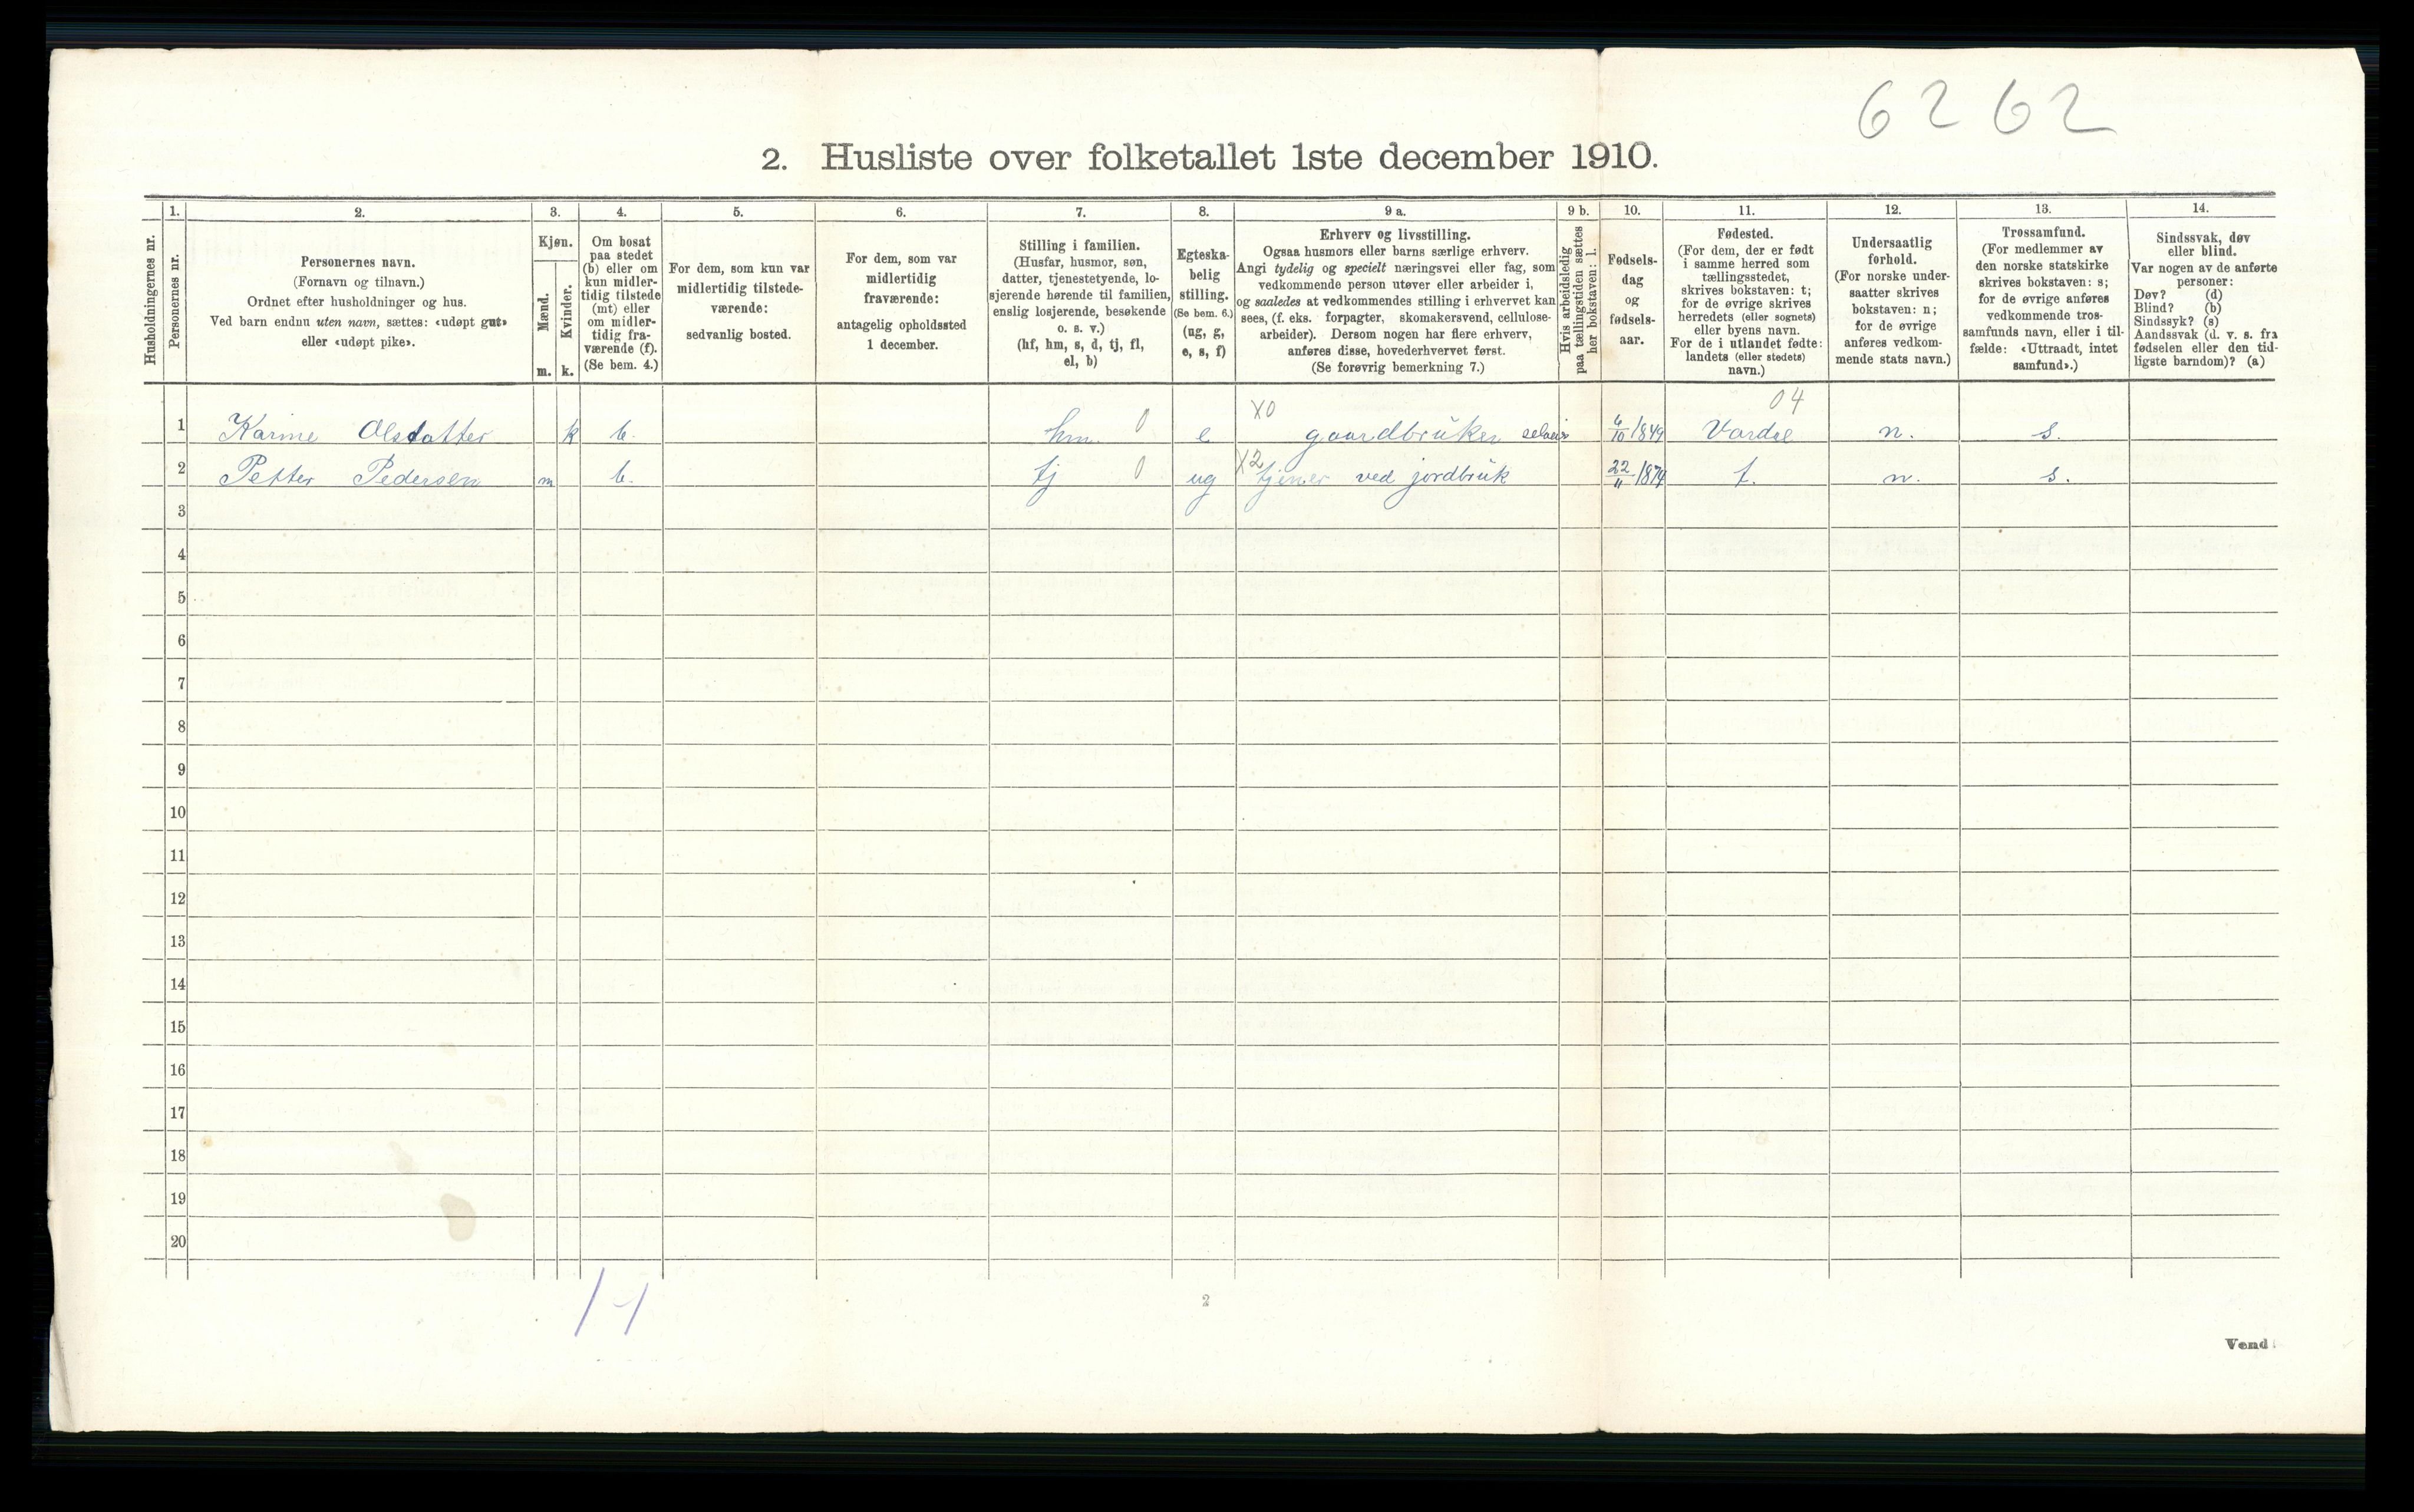 6262
2. Husliste over folketallet 1ste december 1910.
1. 2. 3. 4. 5. 6. 7. 8. 9 a. 9 b. 10. 11. 12. 13. 14.
Husholdningernes nr.
Personernes nr.
Personernes navn.
(Fornavn og tilnavn.)
Ordnet efter husholdninger og hus.
Ved barn endnu uten navn, sættes: «udøpt gut»
eller «udøpt pike».
Kjøn.
Mænd.
Kvinder.
m. k.
Om bosat
paa stedet
(b) eller om
kun midler-
tidig tilstede
(mt) eller
om midler-
tidig fra-
værende (f).
(Se bem. 4.)
For dem, som kun var
midlertidig tilstede-
værende:
sedvanlig bosted.
For dem, som var
midlertidig
fraværende:
antagelig opholdssted
1 december.
Stilling i familien.
(Husfar, husmor, søn,
datter, tjenestetyende, lo-
sjerende hørende til familien,
enslig losjerende, besøkende
o. s. v.)
(hf, hm, s, d, tj, fl,
el, b)
Egteska-
belig
stilling.
(Se bem. 6.)
(ug, g,
e, s, f)
Erhverv og livsstilling.
Ogsaa husmors eller barns særlige erhverv.
Angi tydelig og specielt næringsvei eller fag, som
vedkommende person utøver eller arbeider i,
og saaledes at vedkommendes stilling i erhvervet kan
sees, (f. eks. forpagter, skomakersvend, cellulose-
arbeider). Dersom nogen har flere erhverv,
anføres disse, hovederhvervet først.
(Se forøvrig bemerkning 7.)
Hvis arbeidsledig
paa tællingstiden sættes
her bokstaven: l.
Fødsels-
dag
og
fødsels-
aar.
Fødested.
(For dem, der er født
i samme herred som
tællingsstedet,
skrives bokstaven: t;
for de øvrige skrives
herredets (eller sognets)
eller byens navn.
For de i utlandet fødte:
landets (eller stedets)
navn.)
Undersaatlig
forhold.
(For norske under-
saatter skrives
bokstaven: n;
for de øvrige
anføres vedkom-
mende stats navn.)
Trossamfund.
(For medlemmer av
den norske statskirke
skrives bokstaven: s;
for de øvrige anføres
vedkommende tros-
samfunds navn, eller i til-
fælde: «Uttraadt, intet
samfund».)
Sindssvak, døv
eller blind.
Var nogen av de anførte
personer:
Døv? (d)
Blind? (b)
Sindssyk? (s)
Aandssvak (d. v. s. fra
fødselen eller den tid-
ligste barndom)? (a)
X0 04
1 Karine Olsdatter k b. hm. 0 e gaardbruker selveier 6/10 1849 Vardal n. s.
2 Petter Pedersen m b. tj 0 ug X2 tjener ved jordbruk 22/11 1874 t. n. s.
3
4
5
6
7
8
9
10
11
12
13
14
15
16
17
18
19
20
1 1
2
Vend